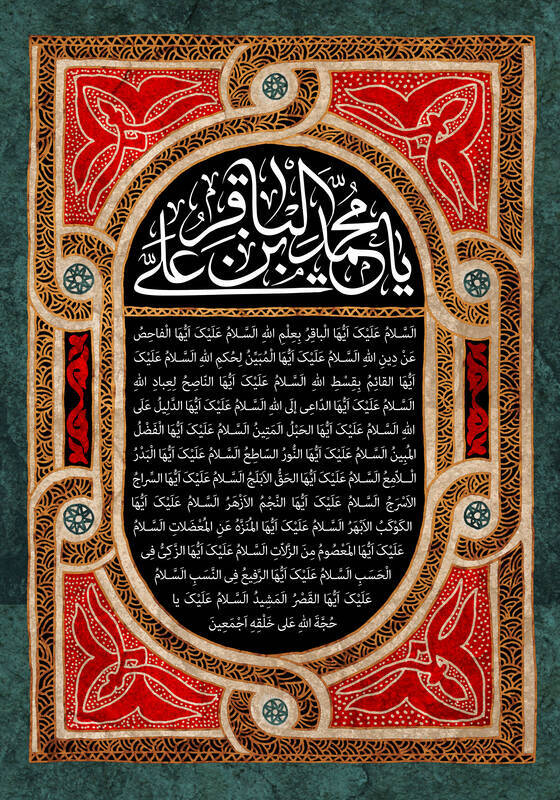 یا محمد بن علی الباقر
اَلسَّلامُ عَلَیْکَ اَیُّهَا الْباقِرُ بِعِلْمِ اللهِ اَلسَّلامُ عَلَیْکَ اَیُّهَا الْفاحِصُ
عَنْ دِینِ اللهِ اَلسَّلامُ عَلَیْکَ اَیُّهَا الْمُبَیِّنُ لِحُکمِ اللهِ اَلسَّلامُ عَلَیْکَ
اَیُّهَا القائِمُ بِقِسْطِ اللهِ اَلسَّلامُ عَلَیْکَ اَیُّهَا النّاصِحُ لِعِبادِ اللهِ
اَلسَّلامُ عَلَیْکَ اَیُّهَا الدّاعِی اِلَی اللهِ اَلسَّلامُ عَلَیْکَ اَیُّهَا الدَّلِیلُ عَلَی
اللهِ اَلسَّلامُ عَلَیْکَ اَیُّهَا الحَبْلُ المَتِینُ اَلسَّلامُ عَلَیْکَ اَیُّهَا الْفَضْلُ
المُبِینُ اَلسَّلامُ عَلَیْکَ اَیُّهَا النُّورُ السّاطِعُ اَلسَّلامُ عَلَیْکَ اَیُّهَا الْبَدْرُ
الْلاّمِعُ اَلسَّلامُ عَلَیْکَ اَیُّهَا الحَقُّ الاَبْلَجُ اَلسَّلامُ عَلَیْکَ اَیُّهَا السِّراجُ
الاَسْرَجُ اَلسَّلامُ عَلَیْکَ اَیُّهَا النَّجْمُ الاَزْهَرُ اَلسَّلامُ عَلَیْکَ اَیُّهَا
الکَوْکَبُ الاَبْهَرُ اَلسَّلامُ عَلَیْکَ اَیُّهَا المُنَزَّهُ عَنِ المُعْضَلاتِ اَلسَّلامُ
عَلَیْکَ اَیُّهَا المَعْصُومُ مِنَ الزَّلاّتِ اَلسَّلامُ عَلَیْکَ اَیُّهَا الزَّکِیُّ فِی
الْحَسَبِ اَلسَّلامُ عَلَیْکَ اَیُّهَا الرَّفِیعُ فِی النَّسَبِ اَلسَّلامُ
عَلَیْکَ اَیُّهَا القَصْرُ المَشِیدُ اَلسَّلامُ عَلَیْکَ یا
حُجَّةَ اللهِ عَلی خَلْقِهِ اَجْمَعِینَ